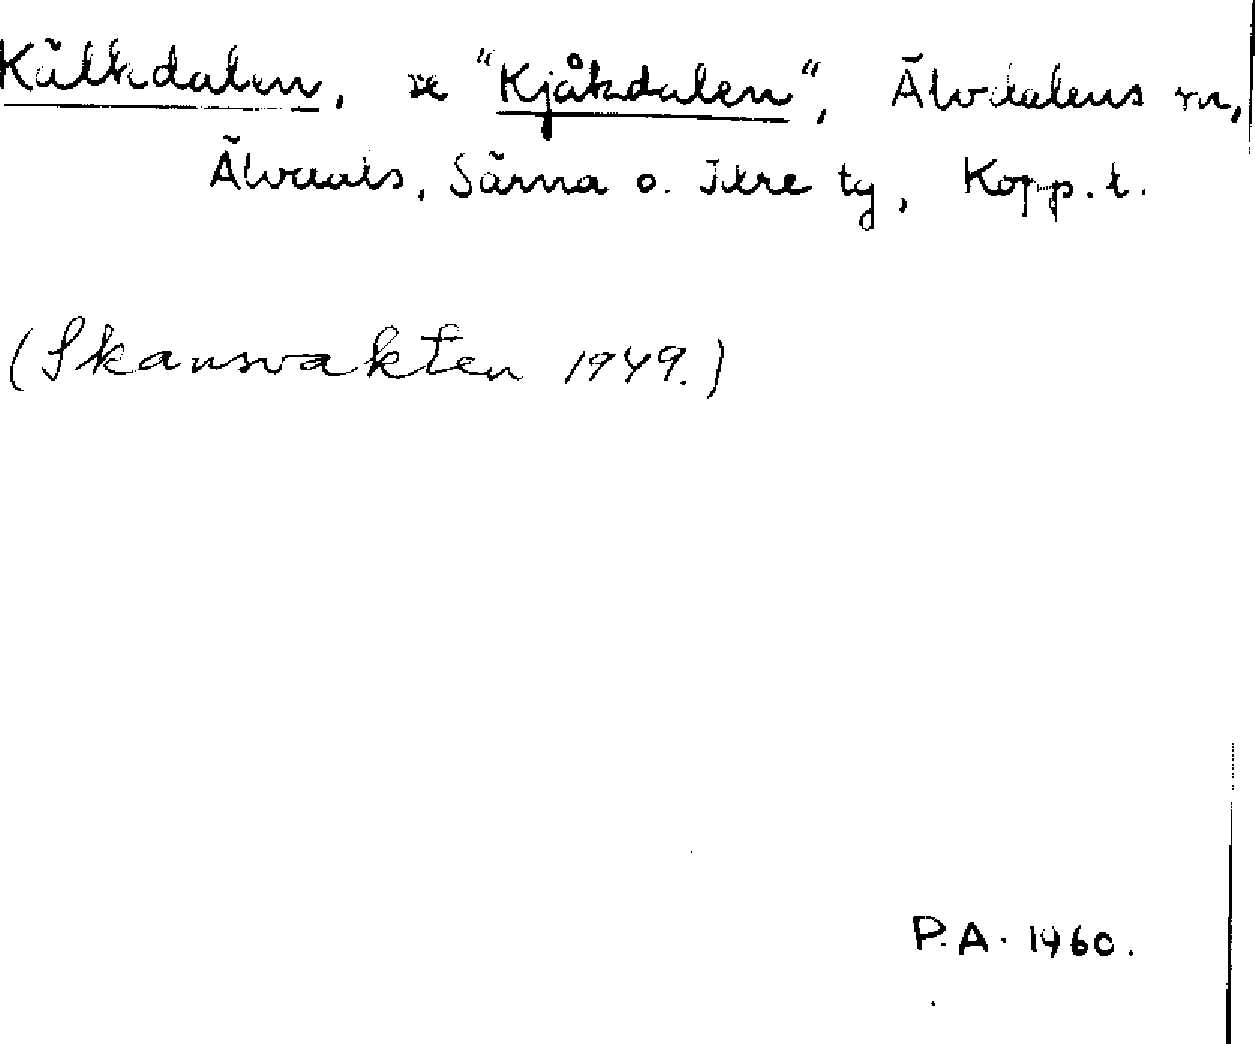 Kälkdalen, se "Kjåkdalen", Älvdalens sn,
Älvdals, Särna o. Idre tg, Kopp. l.
(Skansvakten 1949.)
P.A. 1960.